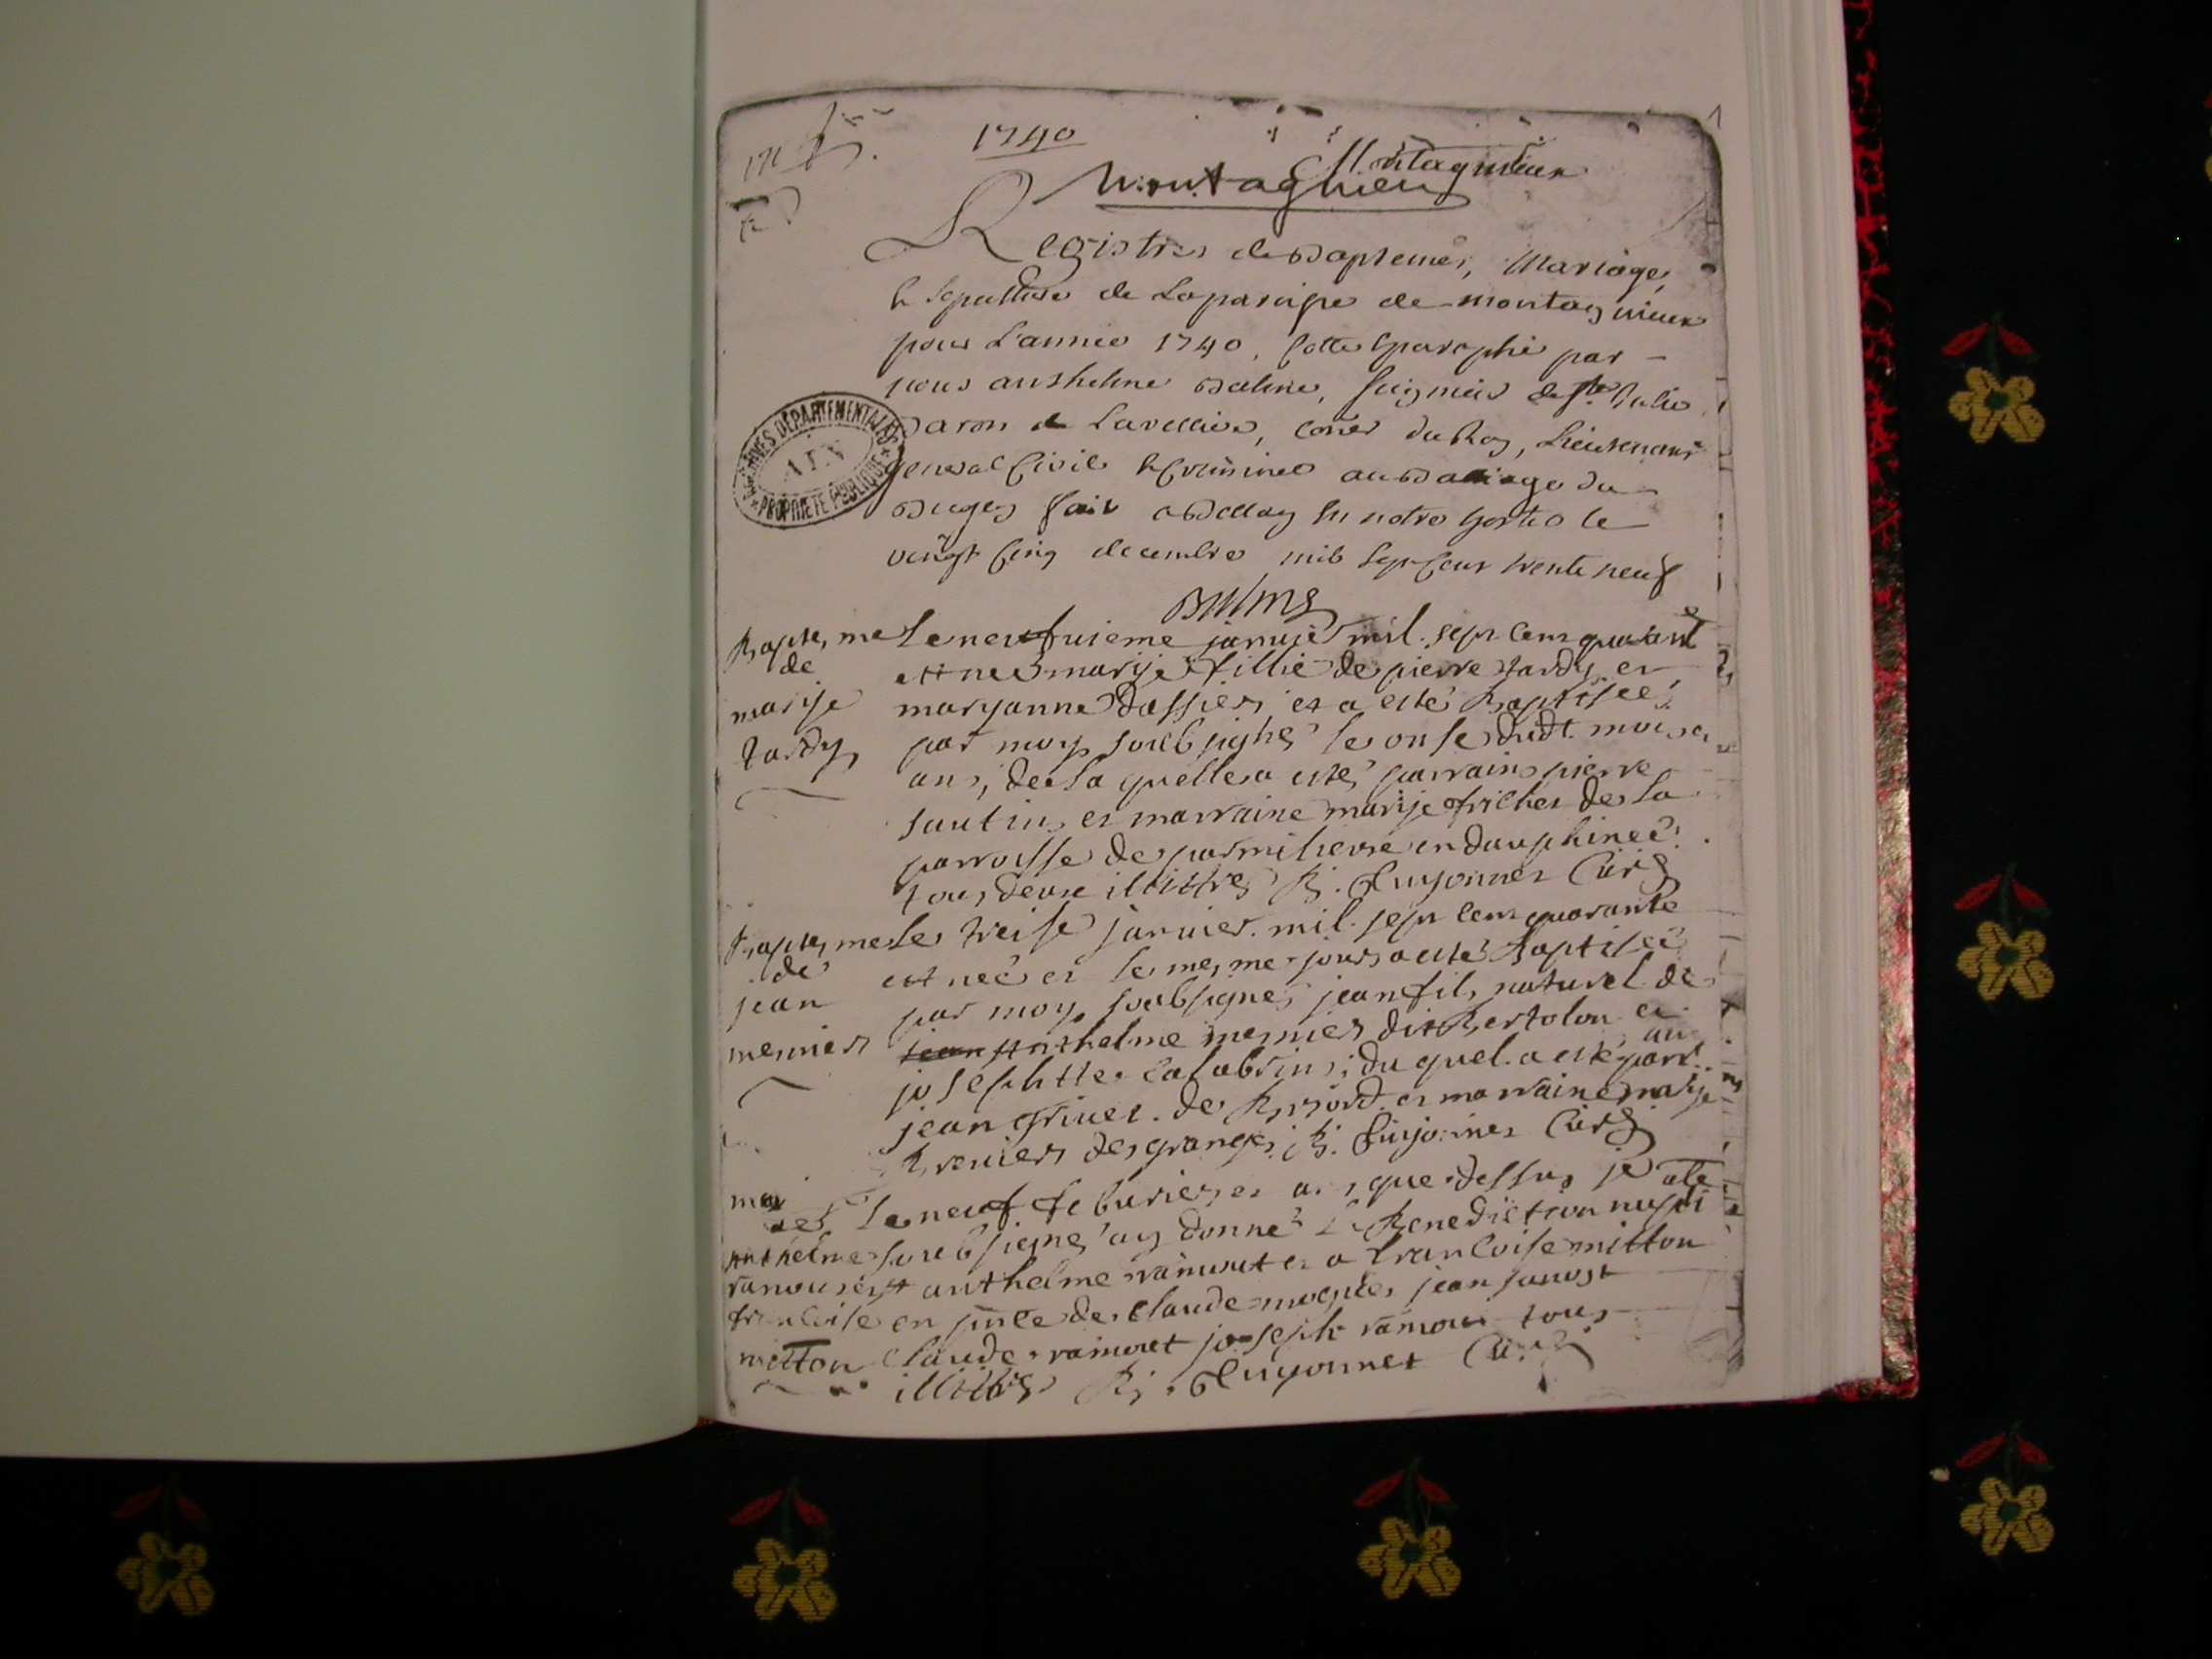 1740
Montagnieux
Montagnieu
Registres de Baptemes, Mariages,
& Sepulture de La paroisse de montagnieux
pour L'année 1740, Cotté & paraphé par
nous anthelme Balme, seigneur de Ste Julie
Baron de Lavelliere, Coner du Roy, Lieutenant
general Civil & Criminel au Bailiage du
Bugey fait a Belley en notre hostel le
vingt Cinq decembre mil Sept Cent trente neuf
ARCHIVES DÉPARTEMENTALES
AIN
PROPRIÉTÉ PUBLIQUE
Balme
Baptesme
de
marije
tardy
Le neufvieme janvie mil sept cent quarante
est neé marije fillie de pierre tardy et
maryanne dassier et a esté Baptiseé
par moy soubsigné le onse dudt mois et
an, de La quelle a esté parrain pierre
sautin et marraine marije de La
parroisse de parmilieure en dauphineé
tous deux illittres B. Guyonnet Curé
Baptesme
de
jean
mermier
Le treise janvier mil sept cent quarante
est neé et le mesme jour a esté Baptiseé
par moy soubsigné jean fils naturel de
jean anthelme mermier dit Bertolon et
josephtte Calabrin; du quel a esté parrain
jean grivet de Briord et marraine marije
Brevier des granges B. Guyonnet Curé
mar
anthelme
ramouset
francoise
mitton
Le neuf feburier et an que dessus je
soubsigné ay donné La Benediction nupti ale
a anthelme ramuset et a francoise mitton
en pnce de Claude jean janost
Claude ramuset joseph ramou tous
illittres B. Guyonnet Curé